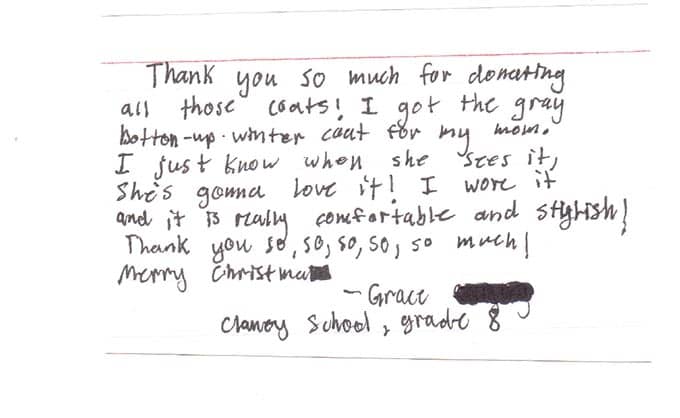 Thank you so much for donating
all those coats! I got the gray
botton-up winter coat for my mom.
I just know when she sees it,
She's gonna love it! I wore it
and it is really comfortable and stylish!
Thank you so, so, so, so, so much!
Merry Christma
- Grace
School, grade 8